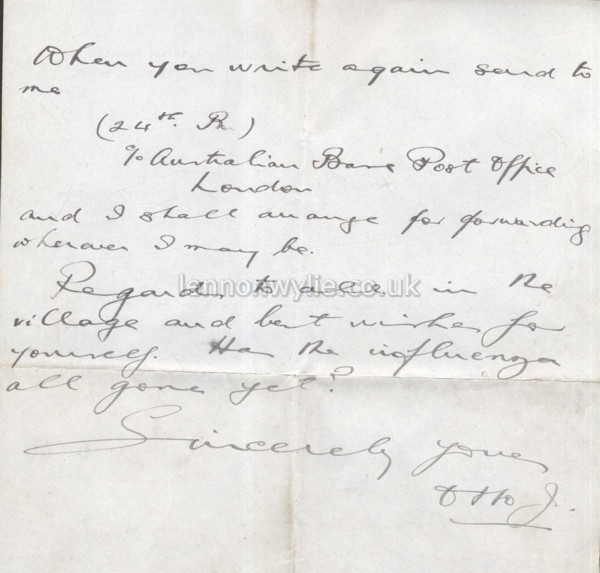 When you write again send to
me
(24th. Bn.)
c/o Australian Base Post Office
London
and I shall arrange for forwarding
wherever I may be.
lennonwylie.co.uk
Regards to all in the
village and best wishes for
yourself. Has the influenza
all gone yet?
Sincerely yours